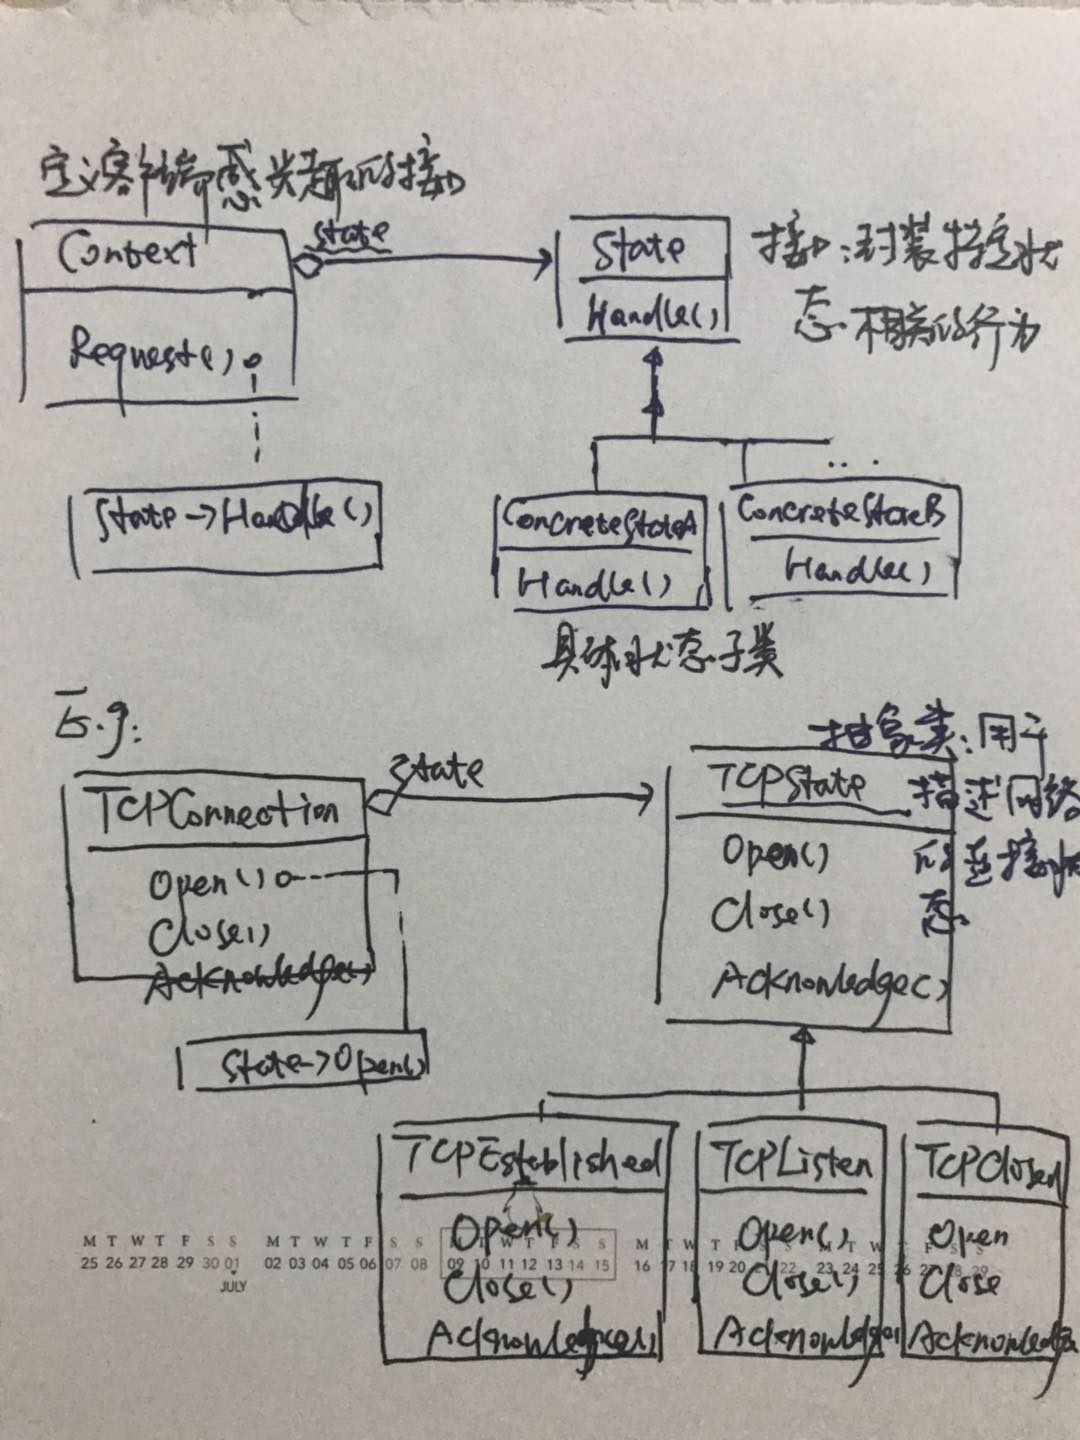 定义客户端感兴趣的接口
Context
Request()
state
State
Handle()
接口:封装特定状
态相关的行为
State->Handle()
...
ConcreteStateA
Handle()
ConcreteStateB
Handle()
具体状态子类
E.g:
TCPConnection
Open()
Close()
Acknowledge()
state
抽象类:用于
描述网络
的连接状
态
TCPState
Open()
Close()
Acknowledge()
State->Open()
TCPEstablished
Open()
Close()
Acknowledge()
TCPListen
Open()
Close()
Acknowledge
TCPClosed
Open
Close
Acknowledge
M T W T F S S M T W T F S S
25 26 27 28 29 30 01 02 03 04 05 06 07 08 09 10 11 12 13 14 15 16 17 18 19 20
JULY